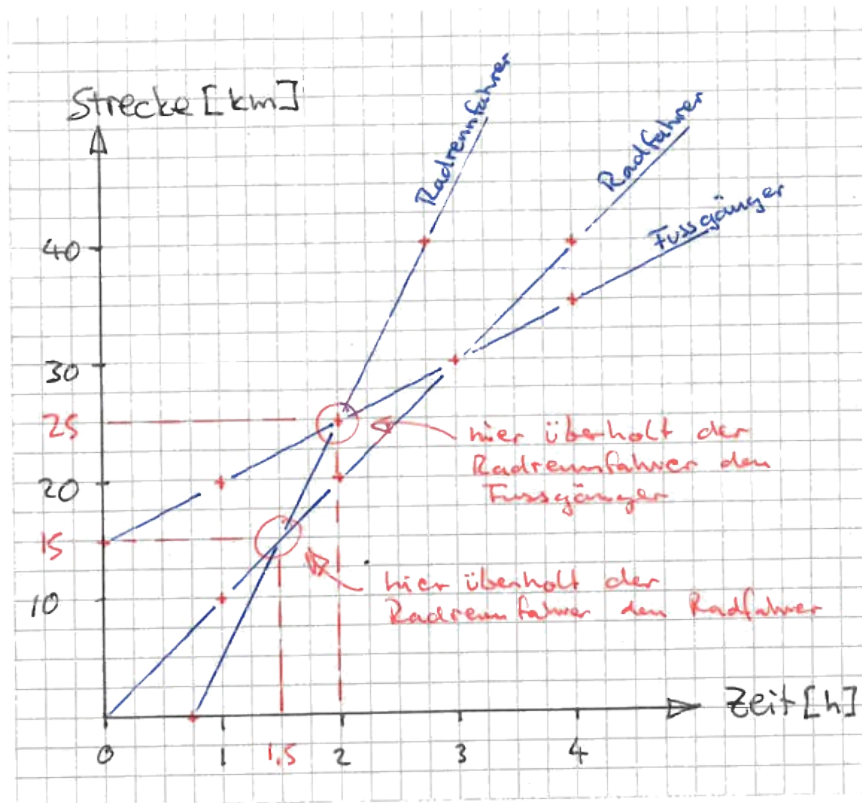 Strecke [km]
Radrennfahrer
Radfahrer
Fussgänger
40
30
25
hier überholt der
Radrennfahrer den
Fussgänger
20
15
hier überholt der
Radrennfahrer den Radfahrer
10
Zeit [h]
0 1 1,5 2 3 4